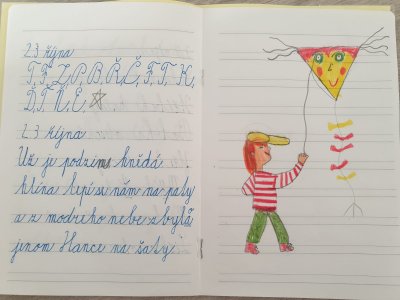 23. října
T, F, Z, P, B, Ř, Š, F, T, K,
Ď, Ť, Ň, Ě,
23. října
Už je podzim hnědá
hlína lepí se nám na paty
a z modreho nebe zbylů
jenom Hance na šaty